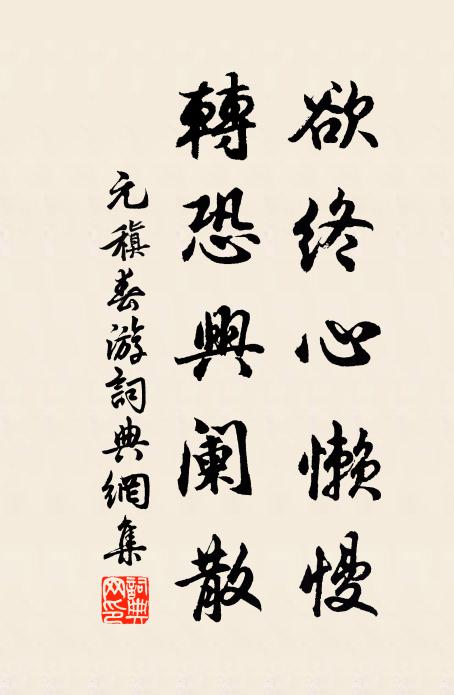 欲终心懒慢
轉恐興阑散
元稹春游詞典網集
詞典网印